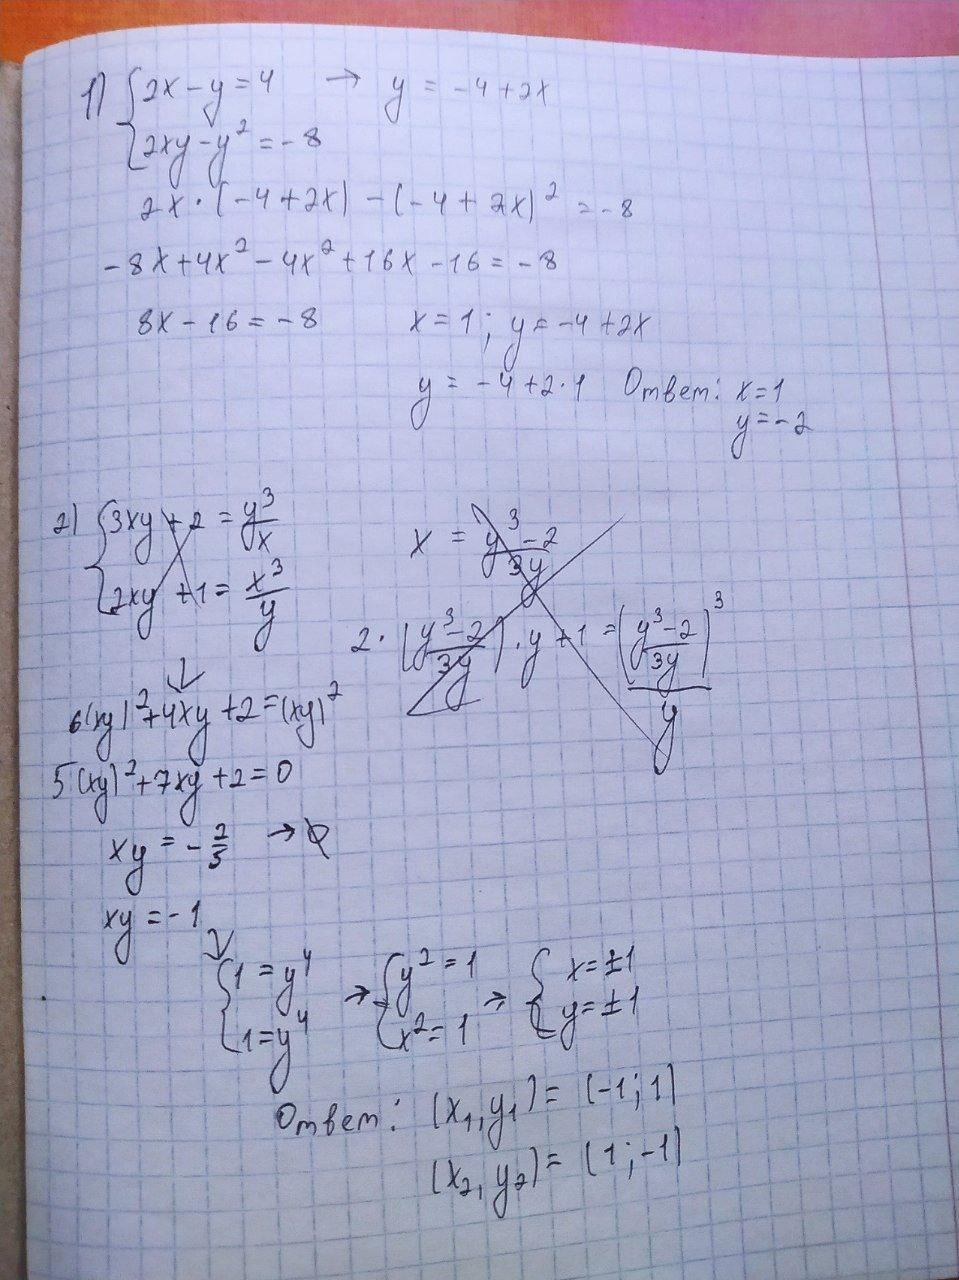 1) { 2x - y = 4 → y = -4 + 2x
2xy - y² = -8
2x · (-4 + 2x) - (-4 + 2x)² = -8
-8x + 4x² - 4x² + 16x - 16 = -8
8x - 16 = -8 x = 1 ; y = -4 + 2x
y = -4 + 2 · 1 Ответ: x = 1
y = -2
2) { 3xy + 2 = y³/x
2xy + 1 = x³/y
x = (y³ - 2)/3y
2 · ((y³ - 2)/3y) · y + 1 = ((y³ - 2)/3y)³/y
↓
6(xy)² + 4xy + 2 = (xy)²
5(xy)² + 7xy + 2 = 0
xy = -2/5 → ∅
xy = -1
↓
{ 1 = y⁴ → { y² = 1 → { x = ±1
1 = y⁴ x² = 1 y = ±1
Ответ: (x₁, y₁) = (-1; 1)
(x₂, y₂) = (1; -1)